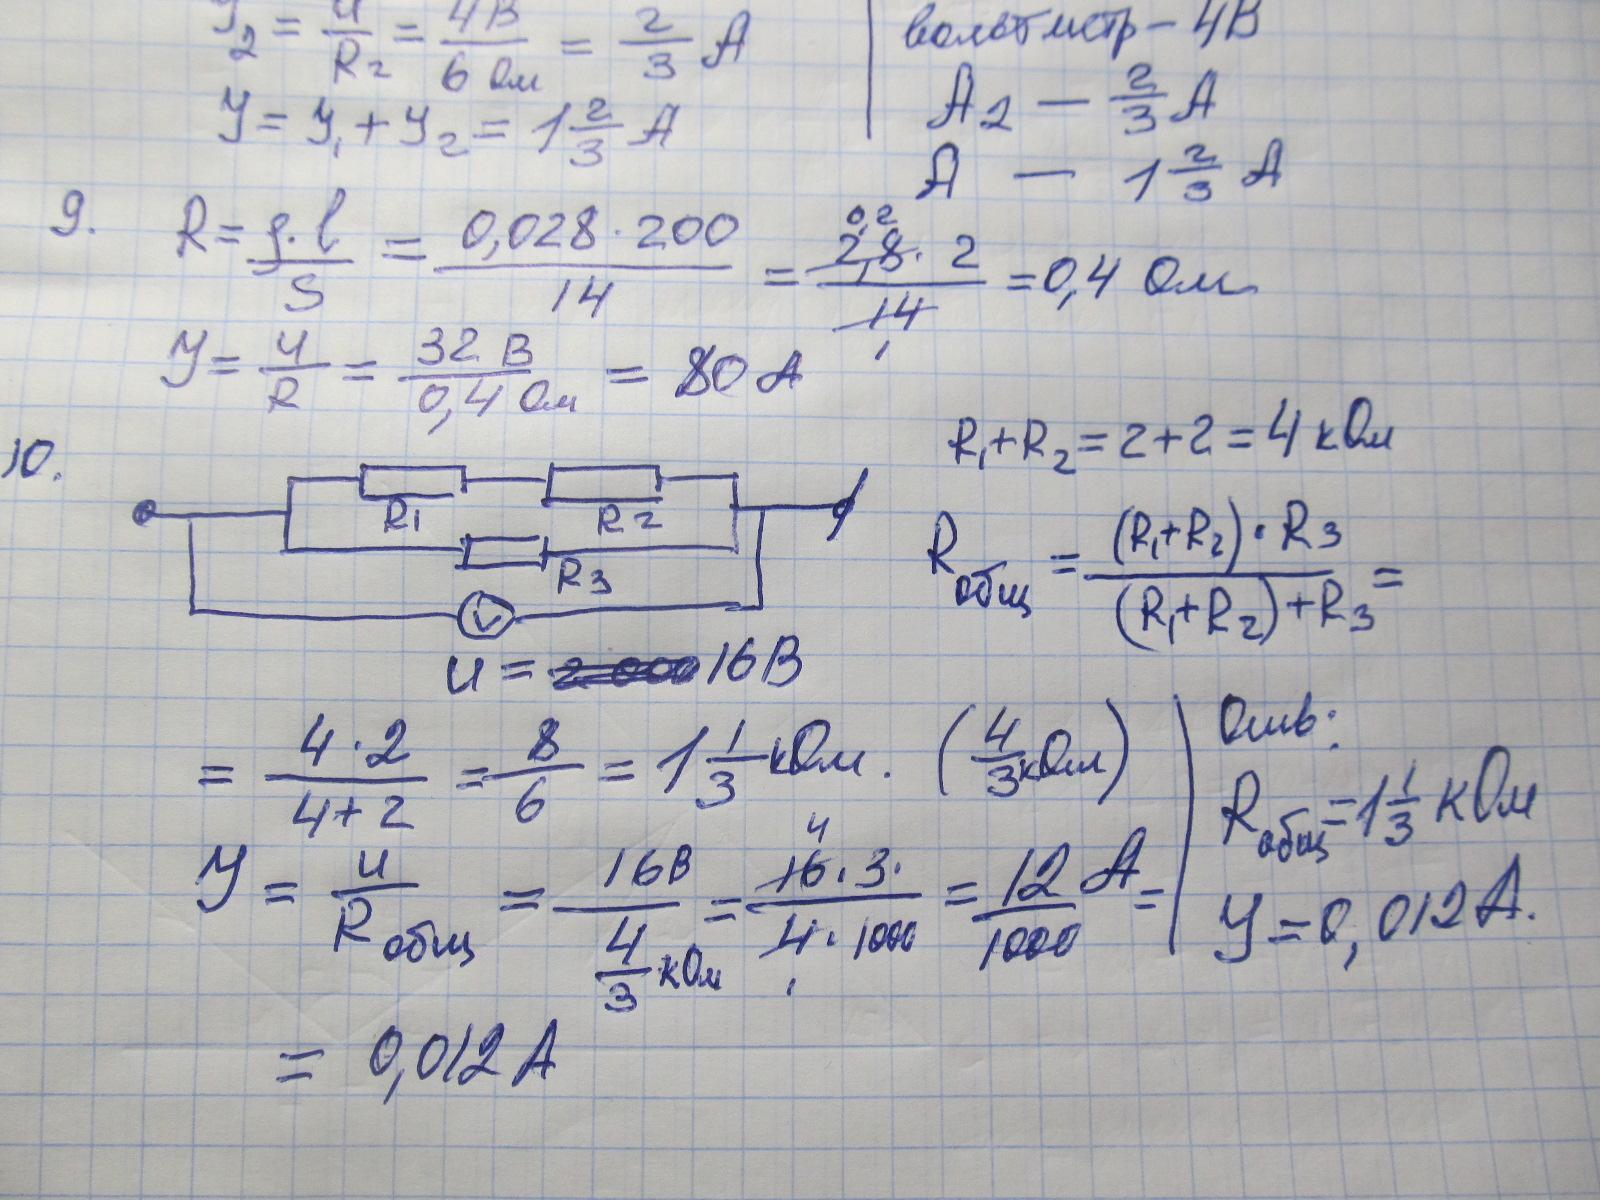 У₂ = u/R₂ = 4В/6 Ом = 2/3 А
У = У₁ + У₂ = 1 2/3 А
вольтметр – 4В
А₂ — 2/3 А
А — 1 2/3 А
9. R = ρ·l/S = 0,028·200/14 = 2,8·2/14 = 0,4 Ом
0,2
1
У = u/R = 32 В/0,4 Ом = 80 А
10.
R1 R2
R3
V
u = 16В
R₁+R₂ = 2+2 = 4 кОм
Rобщ = (R₁+R₂)·R3/(R₁+R₂)+R3 =
= 4·2/4+2 = 8/6 = 1 1/3 кОм. (4/3 кОм)
У = u/Rобщ = 16В/4/3 кОм = 16·3·/4·1000 = 12/1000 А =
4
1
= 0,012 А
Отв:
Rобщ = 1 1/3 кОм
У = 0,012 А.